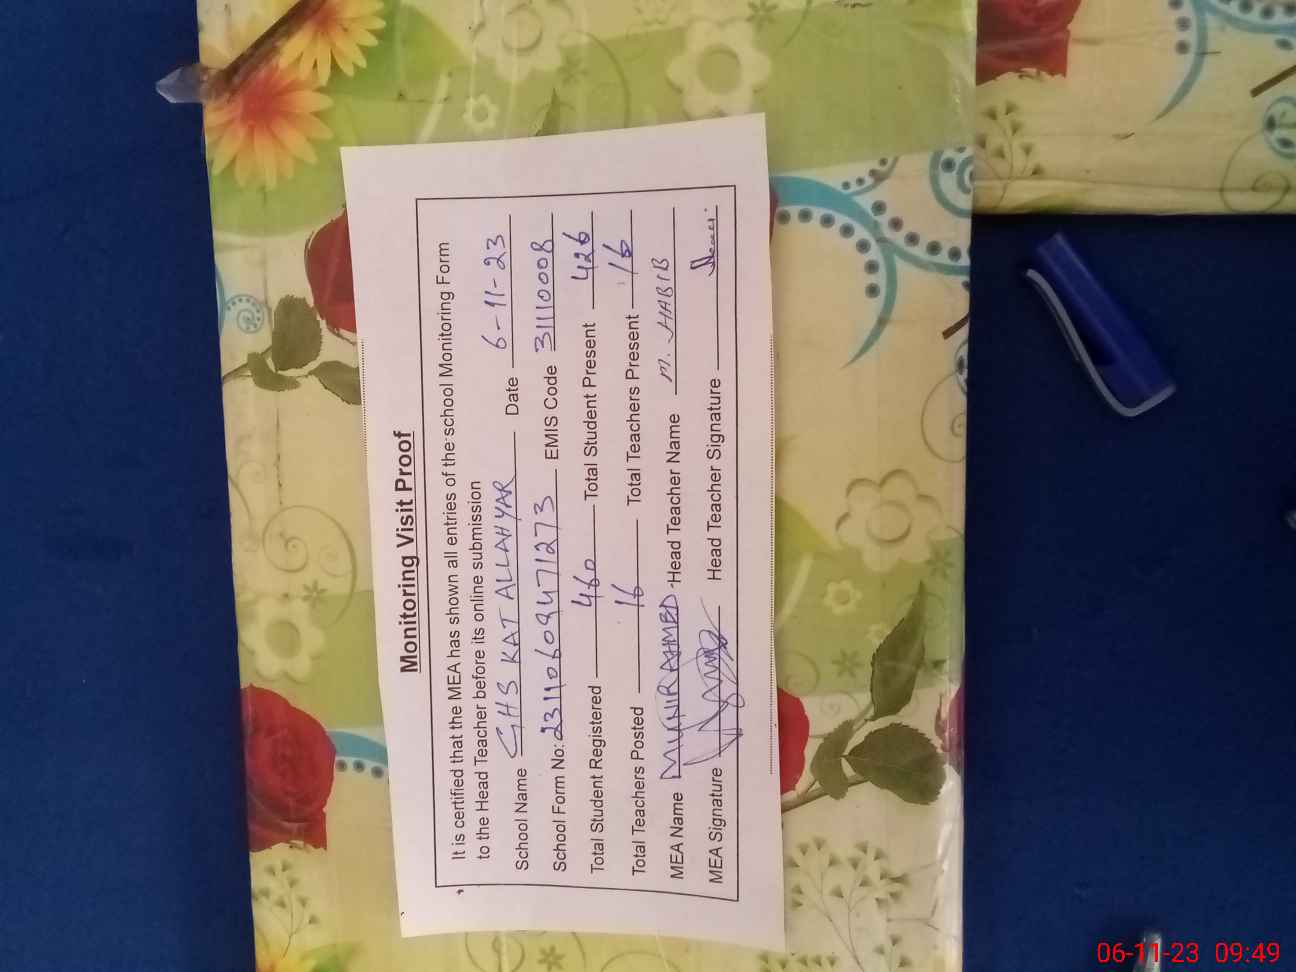 Monitoring Visit Proof
It is certified that the MEA has shown all entries of the school Monitoring Form
to the Head Teacher before its online submission
School Name GHS KAT ALLAHYAR Date 6-11-23
School Form No: 23110609471273 EMIS Code 31110008
Total Student Registered 460 Total Student Present 426
Total Teachers Posted 16 Total Teachers Present 16
MEA Name MUNIR AHMED Head Teacher Name M. HABIB
MEA Signature Head Teacher Signature
06-11-23 09:49